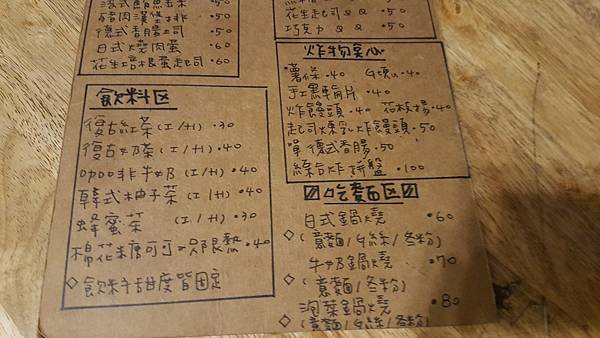 豬肉漢堡排 •50
德式香腸土司 •50
日式燒肉蛋 •60
花生培根蛋起司 •60
飲料区
復古紅茶(I/H) •30
復古奶茶(I/H) •40
咖啡牛奶(I/H) •40
韓式柚子茶(I/H) •40
蜂蜜茶 (I/H) •30
棉花糖可可=只限熱 •40
◇飲料甜度皆固定
花生起司QQ •50
巧克力QQ •50
炸物点心
•薯條•40
手工黑輪片 •40
炸饅頭•40 花枝揚•40
起司煉乳炸饅頭•50
單德式香腸•50
綜合炸拼盤 •100
吃麵区
日式鍋燒 •60
◇(意麵/G絲/冬粉)
牛奶鍋燒 •70
◇(意麵/冬粉)
泡菜鍋燒 •80
◇(意麵/G絲/冬粉)